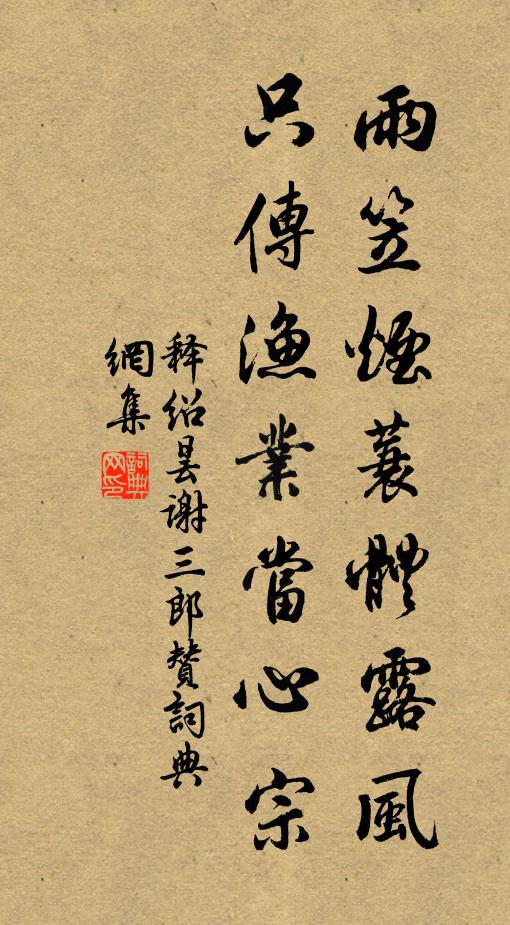 雨笠煙蓑體露風
只傳漁業當心宗
釋紹曇謝三郎贊詞典
網集
詞典網印